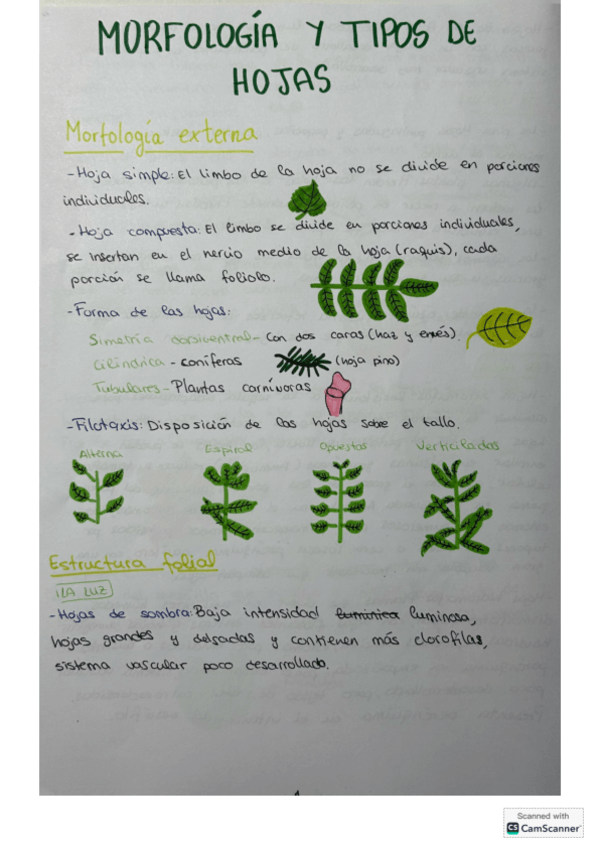 MORFOLOGÍA Y TIPOS DE
HOJAS
Morfología externa
-Hoja simple: El limbo de la hoja no se divide en porciones
individuales.
-Hoja compuesta: El limbo se divide en porciones individuales,
se insertan en el nervio medio de la hoja (raquis), cada
porción se llama foliolo.
-Forma de las hojas:
Simetría dorsiventral- Con dos caras (haz y envés).
Cilíndrica - coníferas (hoja pino)
Tubulares- Plantas carnívoras
-Filotaxis: Disposición de las hojas sobre el tallo.
Alterna Espiral Opuestas Verticiladas
Estructura folial
1LA LUZ
-Hojas de sombra: Baja intensidad lumínica luminosa,
hojas grandes y delgadas y contienen más clorofilas,
sistema vascular poco desarrollado.
Scanned with
CS CamScanner